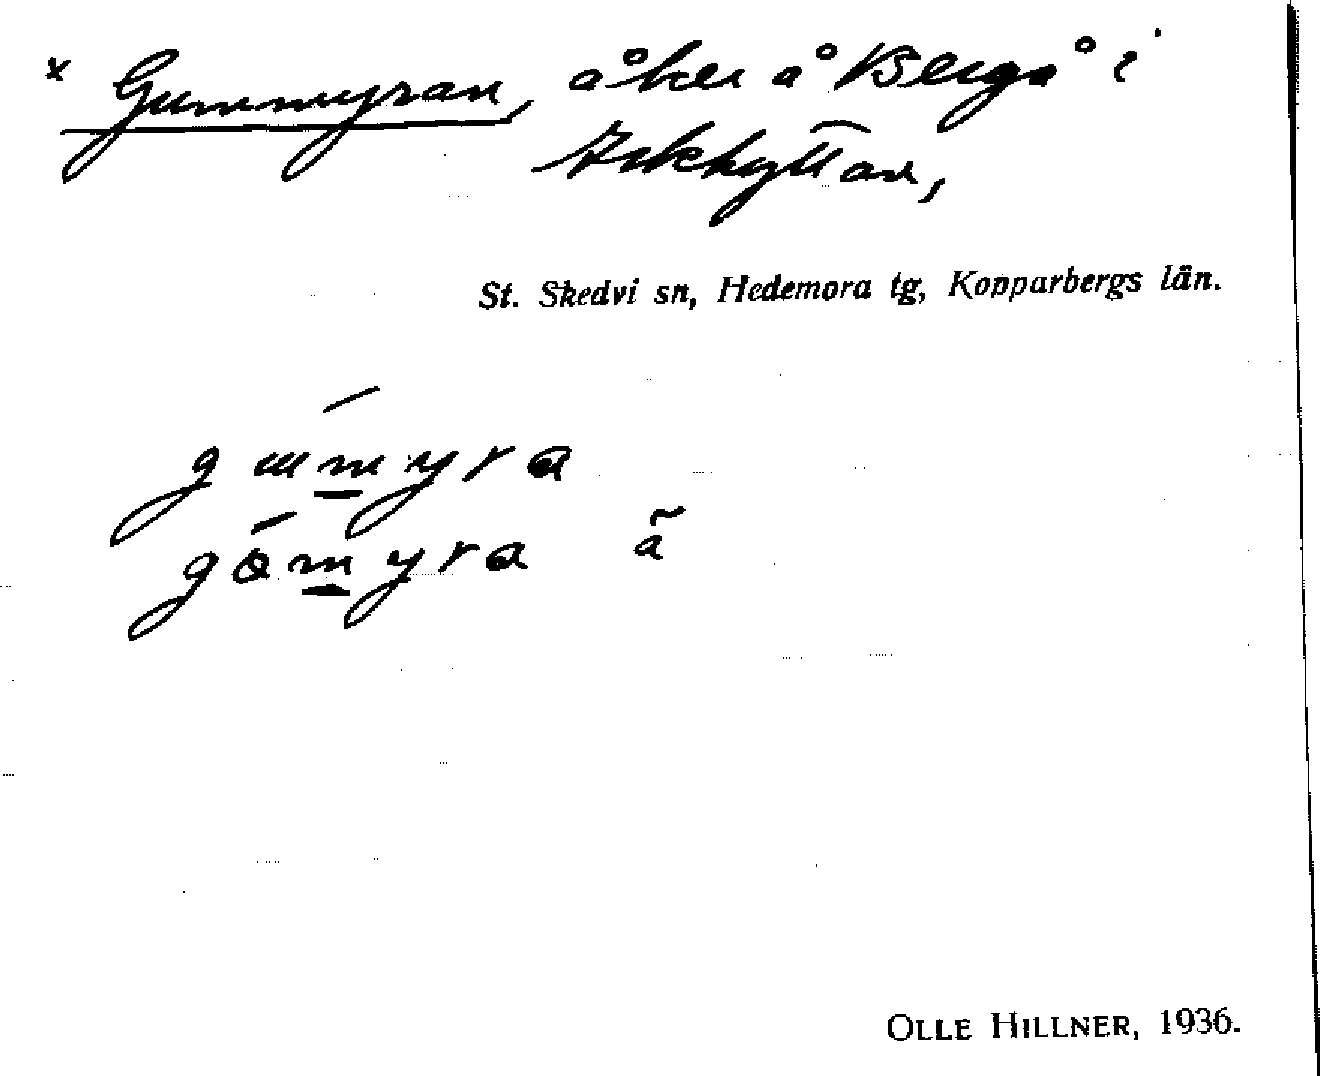 x Gummyran, åker å Bergå i
Arkhyttan,
St. Skedvi sn, Hedemora tg, Kopparbergs län.
gumyra
gömyra ã
OLLE HILLNER, 1936.